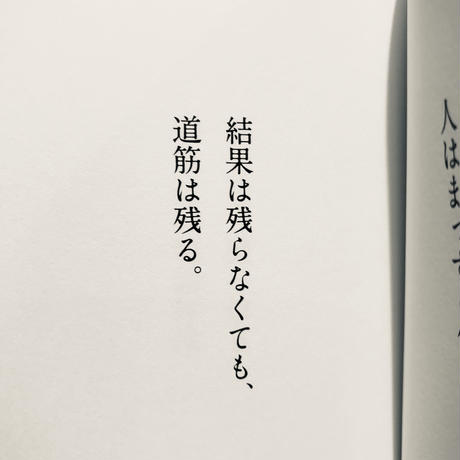 結果は残らなくても、
道筋は残る。
人はまっ